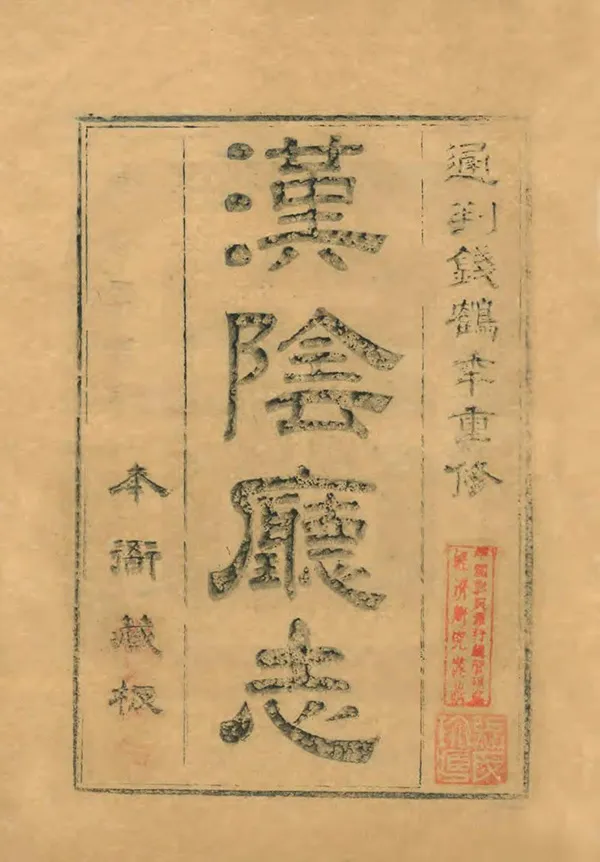 通判錢鶴年重修
漢陰廳志
本衙藏板